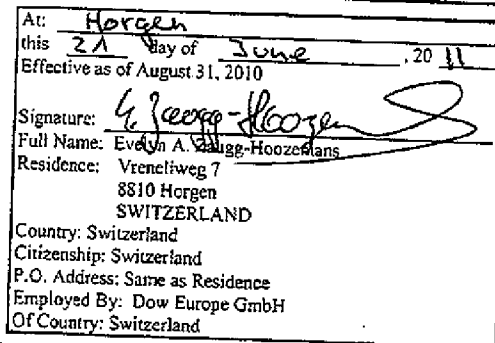 At: Horgen
this 21 day of June, 20 11
Effective as of August 31, 2010
Signature: E. Zaugg-Hoozemans
Full Name: Evelyn A. Zaugg-Hoozemans
Residence: Vreneliweg 7
8810 Horgen
SWITZERLAND
Country: Switzerland
Citizenship: Switzerland
P.O. Address: Same as Residence
Employed By: Dow Europe GmbH
Of Country: Switzerland